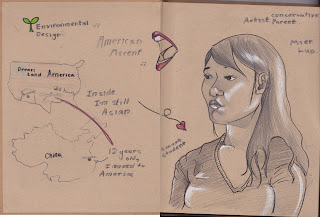 Environmental
Design
American
Accent
Dream
Land America
Inside
I'm still
Asian
China
12 years
only
I moved to
America
conservative
Artist Parent